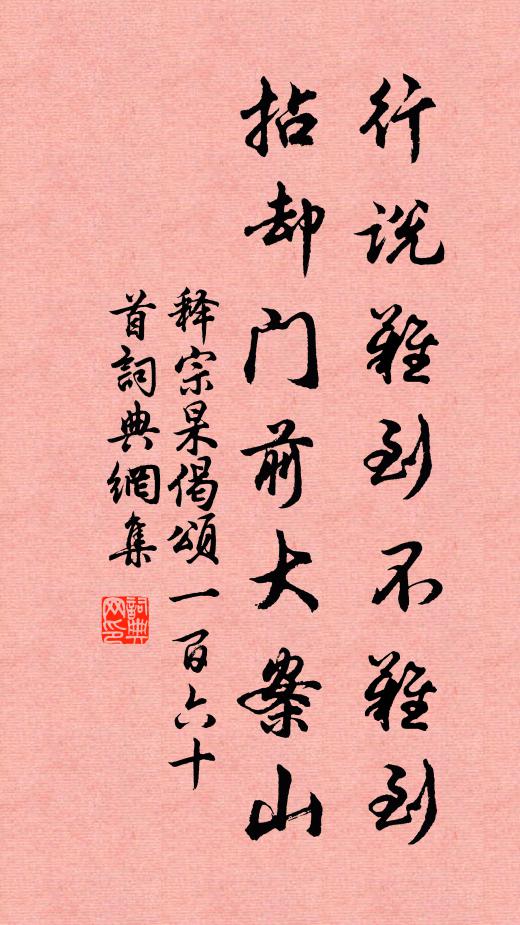 行说难到不难到
拈却门前大案山
释宗杲偈颂一百六十
首词典網集
詞典网印